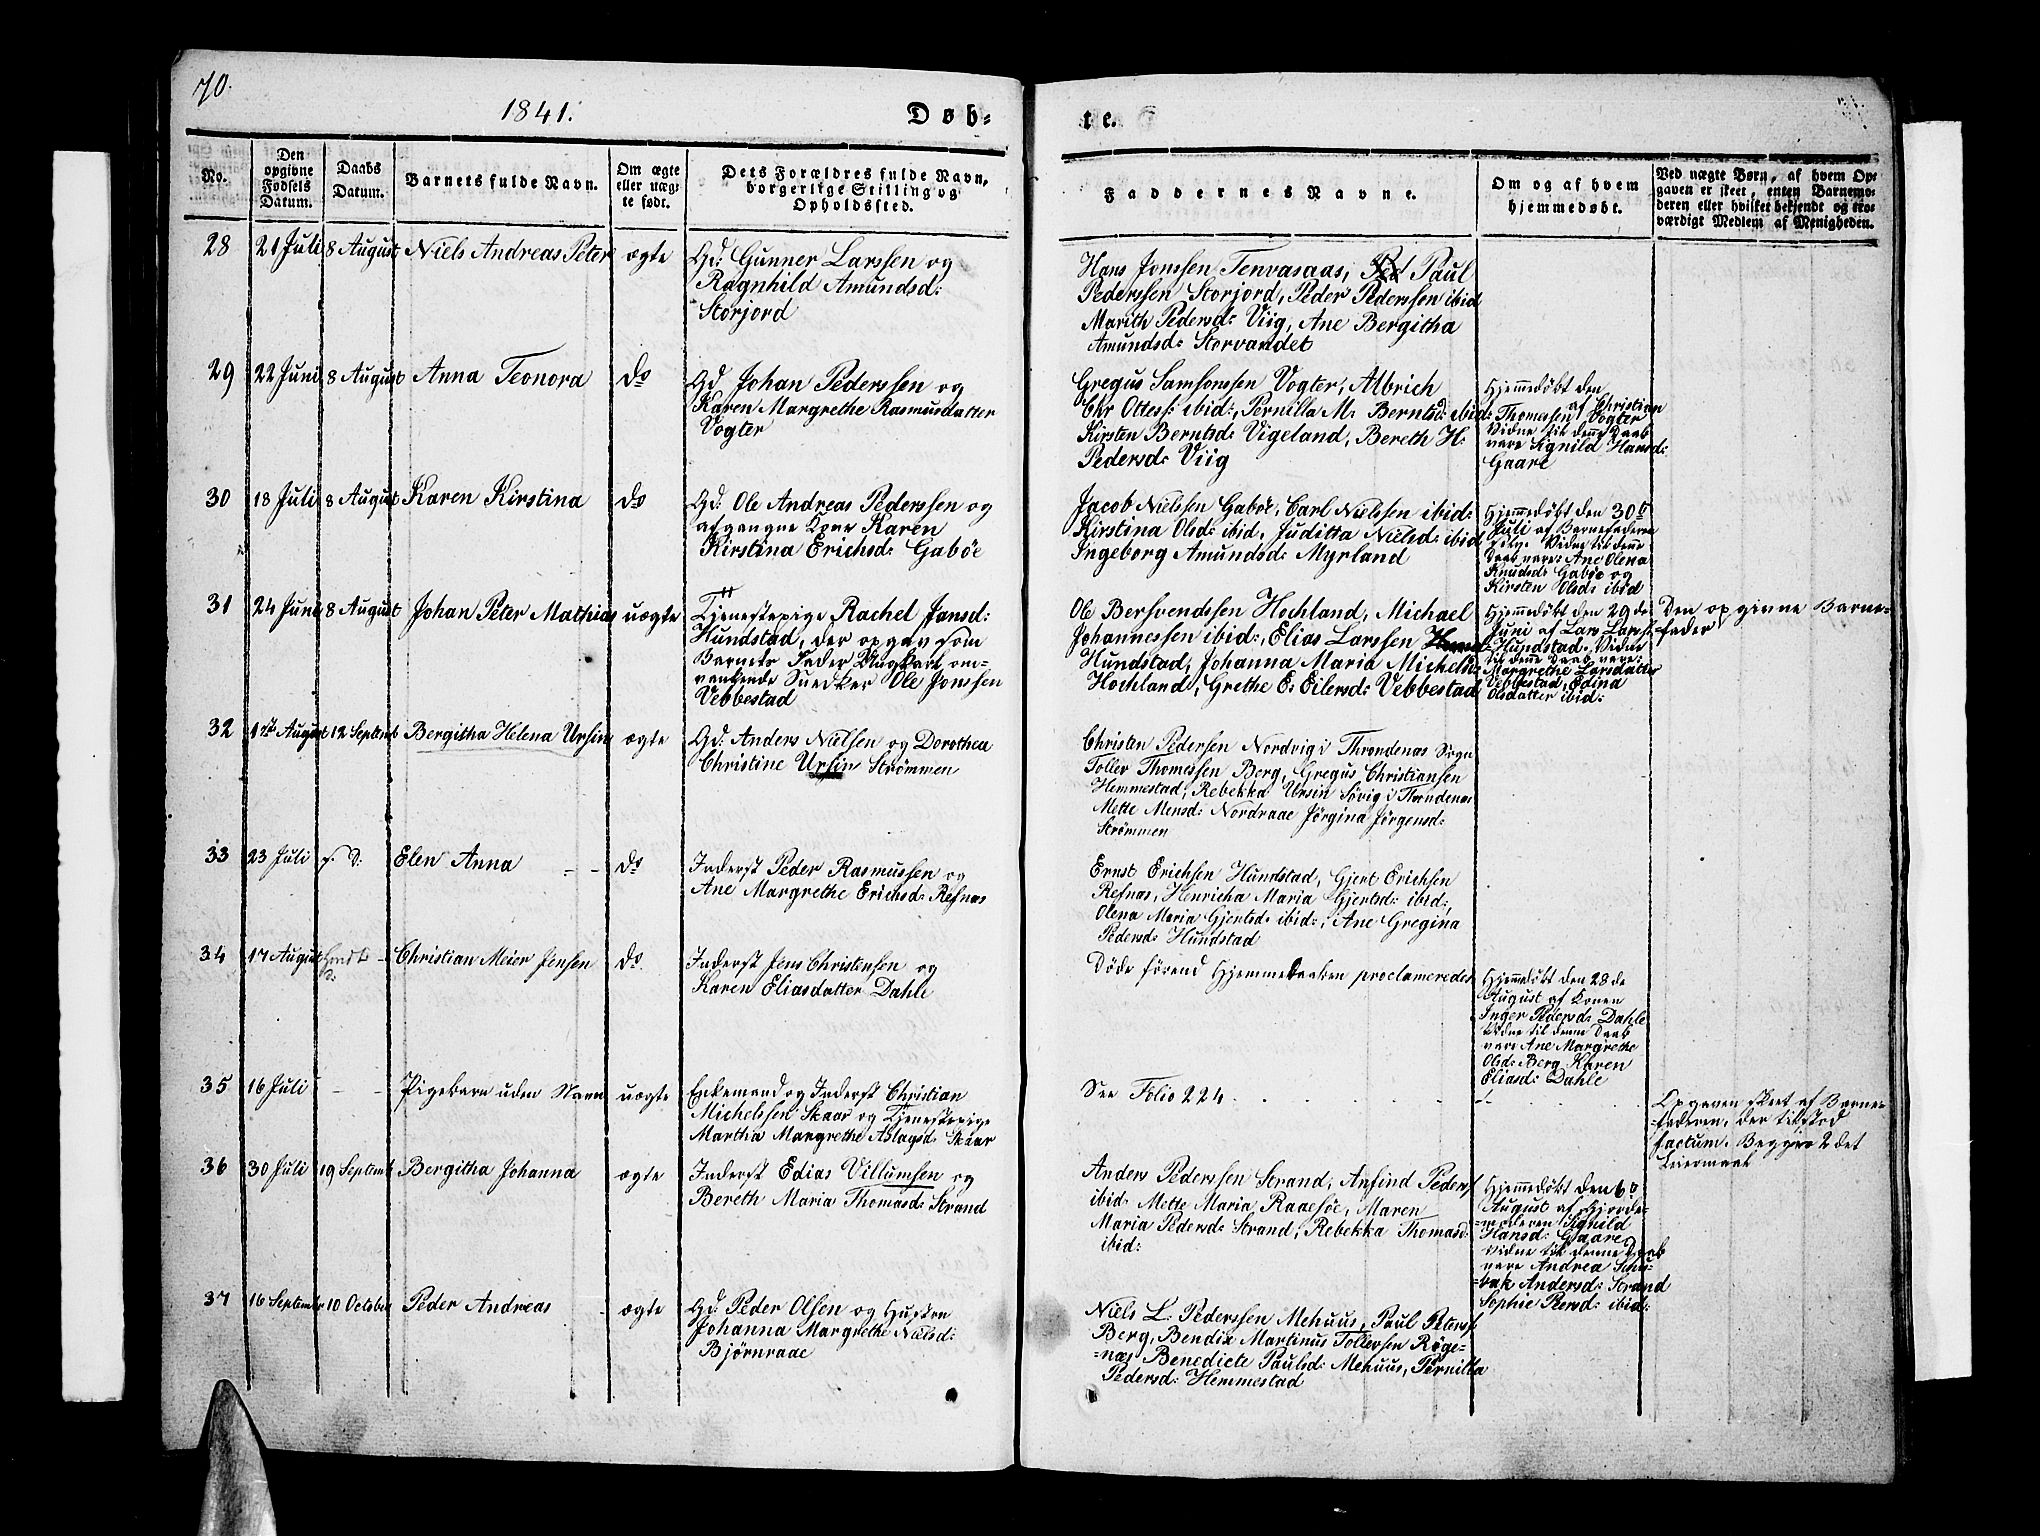 70.
1841.
Døb-
te.
No.
Den
opgivne
Fødsels
Datum.
Daabs
Datum.
Barnets fulde Navn.
Om ægte
eller uæg-
te født.
Dets Forældres fulde Navn,
borgerlige Stilling og
Opholdssted.
Faddernes Navne.
Om og af hvem
hjemmedøbt.
Ved uægte Børn, af hvem Op-
gaven er skeet, enten Barnemo-
deren eller hvilket bekjendt og tro-
værdigt Medlem af Menigheden.
28
21 Juli
8 August
Niels Andreas Peter
ægte
Gd: Gunner Larssen og
Ragnhild Amundsd:
Storjord
Hans Jonssen Tenvasaas, Paul
Pederssen Storjord, Peder Pederssen ibid
Marith Pedersd: Viig, Ane Bergitha
Amundsd: Storvandet
29
22 Juni
8 August
Anna Teonora
do
Gd Johan Pederssen og
Karen Margrethe Rasmusdatter
Vogter
Gregus Samsonssen Vogter, Albrich
Chr Ottess: ibid:, Pernilla M. Berntsd: ibid:
Kirsten Berntsd: Vigeland, Bereth H:
Pedersd: Viig
Hjemmedøbt den
af Christian
Thomessen Vogter
Vidne til denne Daab
vare Signild Hansd:
Gaare
30
18 Juli
8 August
Karen Kirstina
do
Gd: Ole Andreas Pederssen og
afgangne Kone Karen
Kirstina Erichsd: Gabøe
Jacob Nielssen Gabøe, Carl Nielssen ibid:
Kirstina Olsd: ibid, Juditta Nielsd: ibid
Ingeborg Amundsd: Myrland
Hjemmedøbt den 30te
Juli af Barnefaderen
selv. Vidne til denne
Daab vare: Ane Olena
Knudsd: Gabøe og
Kirsten Olsd: ibid
31
24 Juni
8 August
Johan Peter Mathias
uægte
Tjenestepige Rachel Jansd:
Hundstad, der opgav som
Barnets Fader Ungkarl om-
vankende Snedker Ole Jonssen
Vebbestad
Ole Bersvendssen Hochland, Michael
Johannessen ibid:, Elias Larssen
Hundstad, Johanna Maria Michelsd:
Hochland, Grethe E: Eilersd: Vebbestad
Hjemmedøbt den 29 de
Juni af Lars Larss:
Hundstad. Vidne
til denne Daab vare:
Margrethe Larsdatter
Vebbestad, Edina
Olsdatter ibid:
Den opgivne Barne-
fader
32
1ste August
12 Septemb
Bergitha Helena Ursin
ægte
Gd: Anders Nielsen og Dorothea
Christine Ursin Strømmen
Christen Pedersen Nordvig i Throndenas Sogn
Toller Thomessen Berg, Gregus Christiansen
Hemmestad, Rebekka Ursin Sørvig i Throndenas
Mette Mensd: Nordraae Jørgina Jørgensd:
Strømmen
33
23 Juli
s. D:
Elen Anna
do
Inderst Peder Rasmussen og
Ane Margrethe Erichsd: Refnas
Ernst Erichsen Hundstad, Gjert Erichsen
Refnas, Henricha Maria Gjertsd: ibid:,
Olena Maria Gjertsd: ibid:, Ane Gregina
Pedersd: Hundstad
34
17 August
Christian Meier Jensen
do
Inderst Jens Christensen og
Karen Eliasdatter Dahle
Døde førend Hjemmedaaben proclameredes
Hjemmedøbt den 28 de
August af Konen
Inger Pedersd: Dahle
Vidne til denne Daab
vare Ane Margrethe
Olsd: Berg Karen
Eliasd: Dahle
35
16 Juli
Pigebarn uden Navn
uægte
Enkemand og Inderst Christian
Michelssen Skaar og Tjenestepige
Martha Margrethe Aslagsd: Skaar
See Folio 224
Opgaven skeet af Barne-
faderen, der tilstod
factum. Begges 2 det
Leiermaal
36
30 Juli
19 Septemb
Bergitha Johanna
ægte
Inderst Edias Villumsen og
Bereth Maria Thomasd: Strand
Anders Pederssen Strand, Anfind Peders:
ibid: Mette Maria Raaesøe, Maren
Maria Pedersd: Strand, Rebekka Thomasd:
ibid:
Hjemmedøbt den 6te
August af Gjorde-
moderen Signild
Hansd: Gaare
Vidne til denne Daab
vare Andrea Schu-
bak Andersd: Strand
Sophie Persd: ibid:
37
16 September
10 October
Peder Andreas
ægte
Gd: Peder Olsen og Hustru
Johanna Margrethe Nielsd:
Bjørnraae
Niels L. Pederssen Mehuus, Paul Peterss
Berg, Bendix Martinus Tollersen Røge-
næs Benedicte Paulsd: Mehuus, Pernilla
Pedersd: Hemmestad